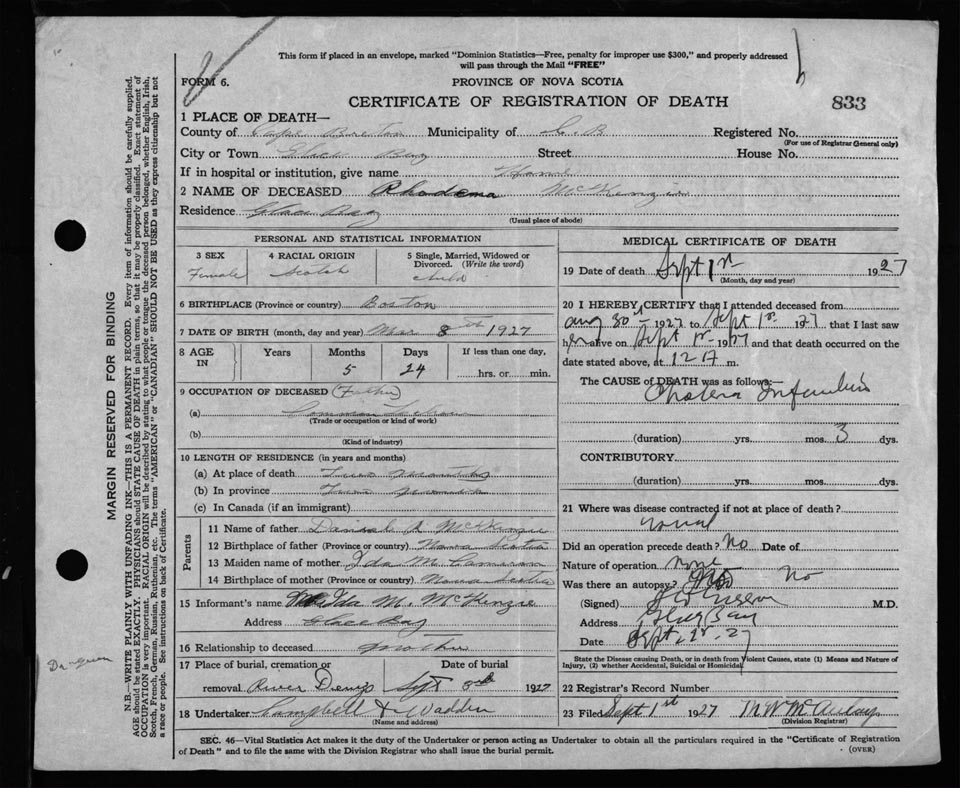 This form if placed in an envelope, marked "Dominion Statistics—Free, penalty for improper use $300," and properly addressed
will pass through the Mail "FREE"
FORM 6.
PROVINCE OF NOVA SCOTIA
CERTIFICATE OF REGISTRATION OF DEATH
833
1 PLACE OF DEATH—
County of Cape Breton Municipality of C. B Registered No.
(For use of Registrar General only)
City or Town Glace Bay Street House No.
If in hospital or institution, give name
2 NAME OF DECEASED Rhodena McKenzie
Residence Glace Bay
(Usual place of abode)
PERSONAL AND STATISTICAL INFORMATION
3 SEX 4 RACIAL ORIGIN 5 Single, Married, Widowed or Divorced. (Write the word)
Female Scotch Child
6 BIRTHPLACE (Province or country) Boston
7 DATE OF BIRTH (month, day and year) Mar 8th 1927
8 AGE IN Years Months Days If less than one day,
5 24 hrs. or min.
9 OCCUPATION OF DECEASED (Father)
(a) Common
(Trade or occupation or kind of work)
(b)
(Kind of industry)
10 LENGTH OF RESIDENCE (in years and months)
(a) At place of death Two Months
(b) In province Two
(c) In Canada (if an immigrant)
Parents
11 Name of father Daniel A McKenzie
12 Birthplace of father (Province or country) Nova Scotia
13 Maiden name of mother Ida M. Cameron
14 Birthplace of mother (Province or country) Nova Scotia
15 Informant's name Ida M. McKenzie
Address Glace Bay
16 Relationship to deceased Mother
17 Place of burial, cremation or Date of burial
removal River Denys Sept 1927
18 Undertaker Campbell & Wadden
(Name and address)
MEDICAL CERTIFICATE OF DEATH
19 Date of death Sept 1st 1927
(Month, day and year)
20 I HEREBY CERTIFY that I attended deceased from
Aug 30th 1927 to Sept 1st 1927 that I last saw
her alive on Sept 1st 1927 and that death occurred on the
date stated above, at 12 A m.
The CAUSE of DEATH was as follows:—
Cholera Infantum
(duration) yrs. mos. 3 dys.
CONTRIBUTORY
(duration) yrs. mos. dys.
21 Where was disease contracted if not at place of death?
Did an operation precede death? No Date of
Nature of operation none
Was there an autopsy? No
(Signed) M.D.
Address Glace Bay
Date Sept. 1st. 27
State the Disease causing Death, or in death from Violent Causes, state (1) Means and Nature of
Injury, (2) whether Accidental, Suicidal or Homicidal.
22 Registrar's Record Number
23 Filed Sept 1st 1927
(Division Registrar)
SEC. 46—Vital Statistics Act makes it the duty of the Undertaker or person acting as Undertaker to obtain all the particulars required in the "Certificate of Registration
of Death" and to file the same with the Division Registrar who shall issue the burial permit.
(OVER)
MARGIN RESERVED FOR BINDING
N.B.—WRITE PLAINLY WITH UNFADING INK—THIS IS A PERMANENT RECORD. Every item of information should be carefully supplied.
AGE should be stated EXACTLY. PHYSICIANS should STATE CAUSE OF DEATH in plain terms, so that it may be properly classified. Exact statement of
OCCUPATION is very important. RACIAL ORIGIN will be described by stating to what people or tongue the deceased person belonged, whether English, Irish,
Scotch, French, German, Russian, Ruthenian, etc. The terms "AMERICAN" or "CANADIAN" SHOULD NOT BE USED as they express citizenship but not
a race or people. See instructions on back of Certificate.